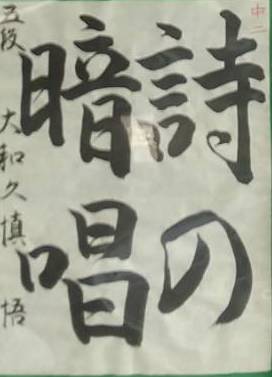 中二
詩の
暗唱
五段 大和久慎悟